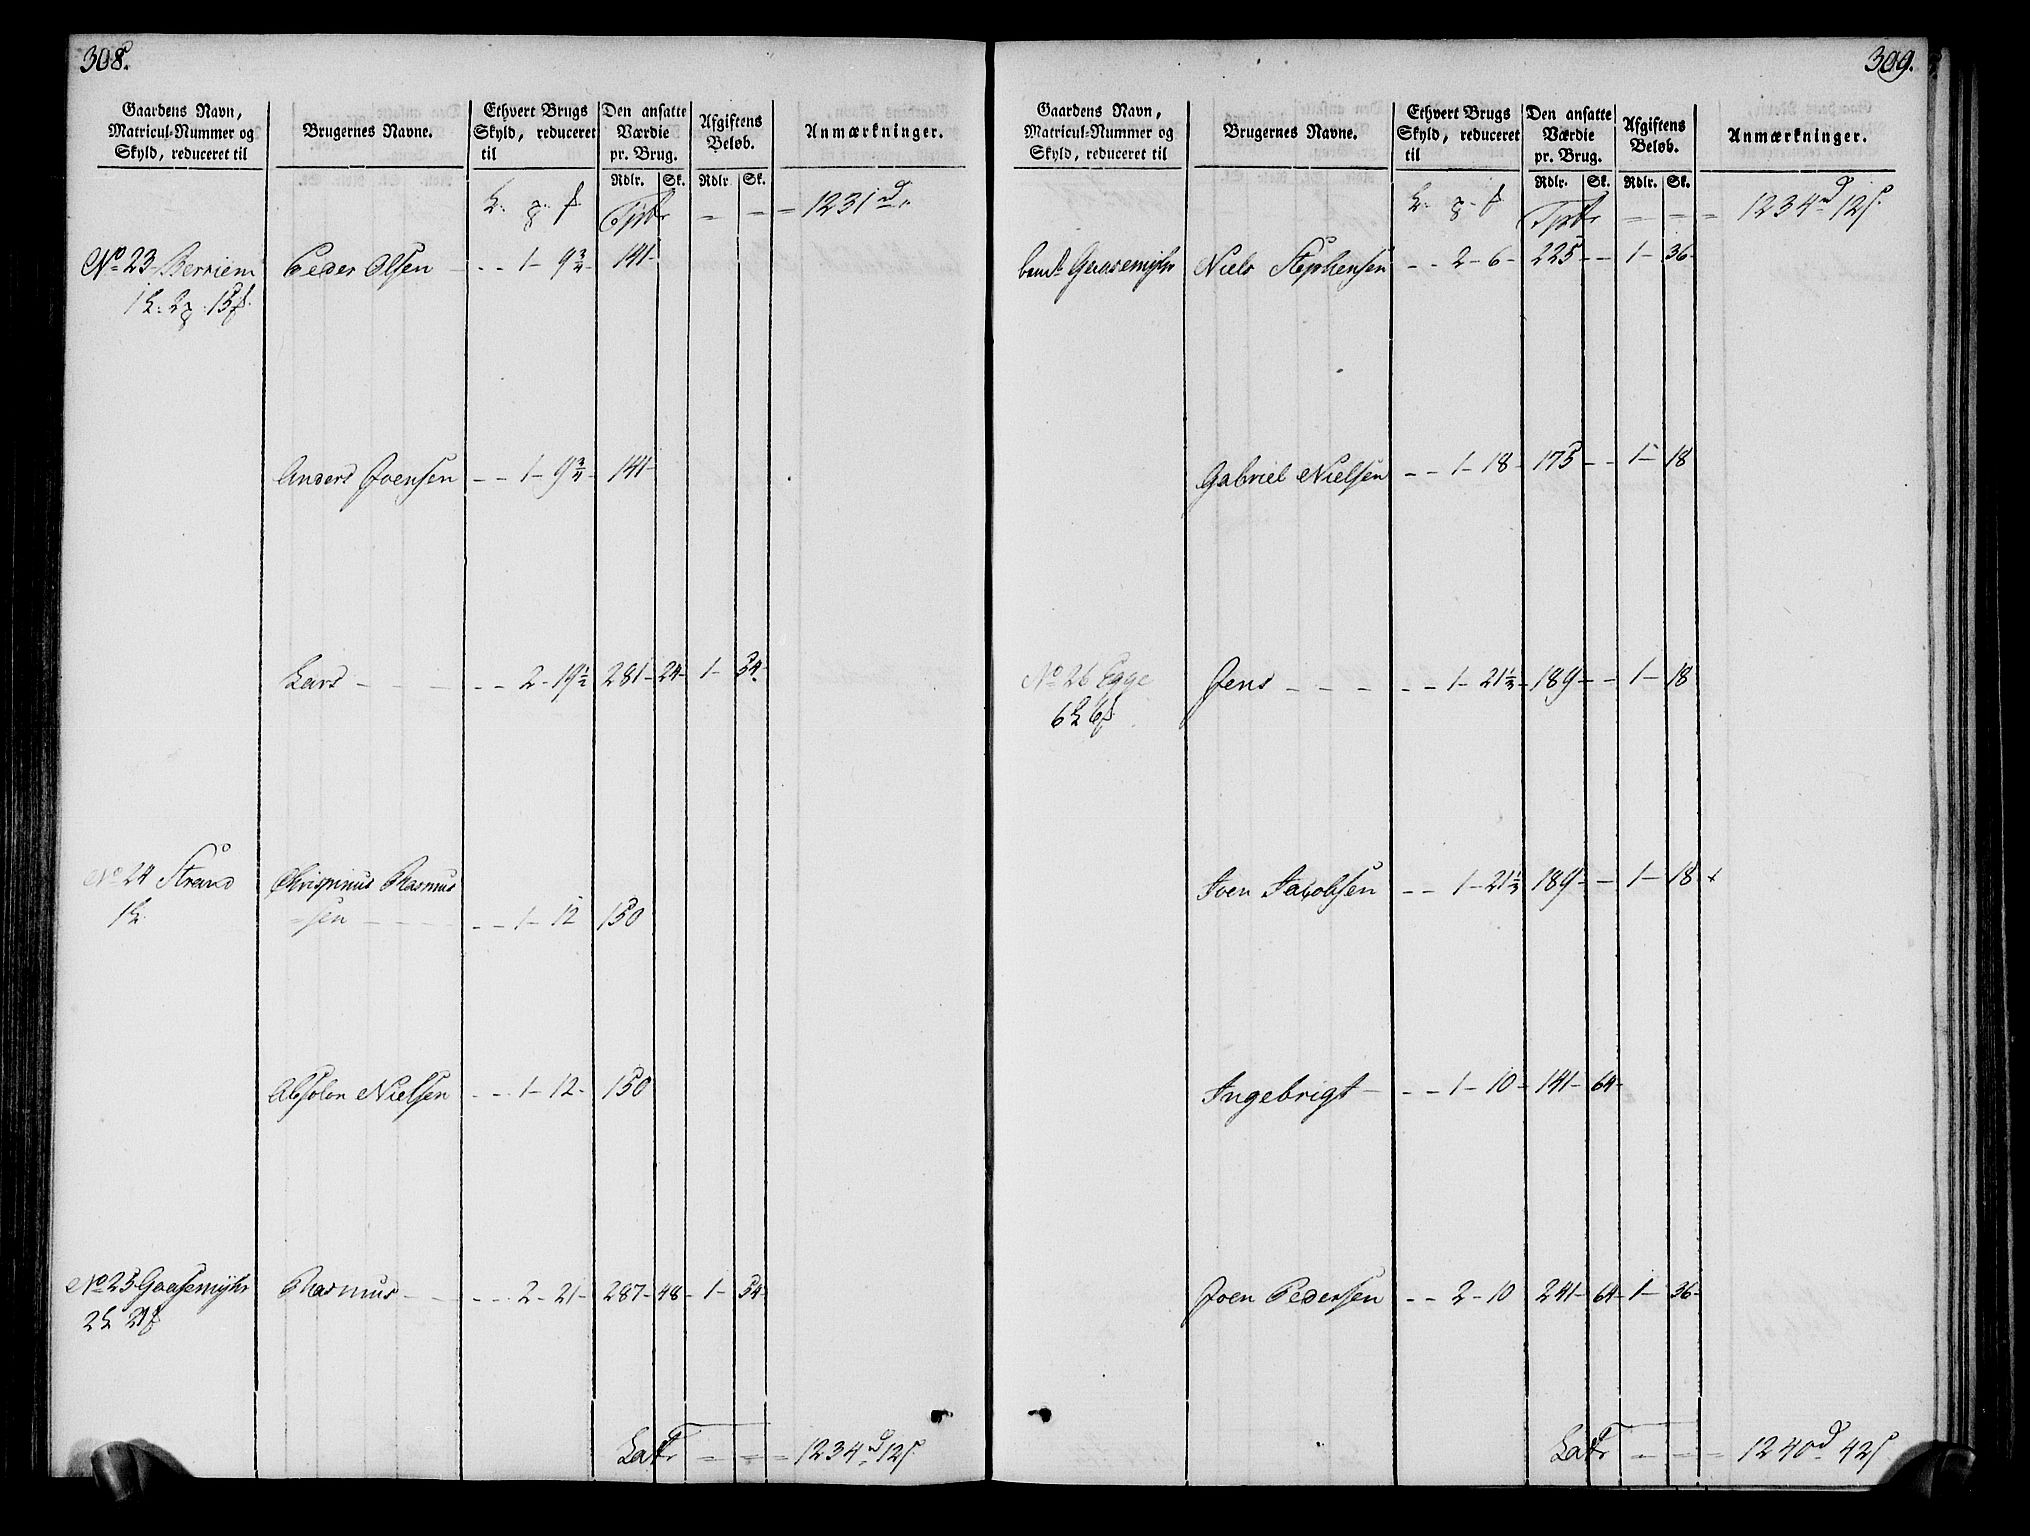 308.
Gaardens Navn, Matricul-Nummer og Skyld, reduceret til
Brugernes Navne.
Ethvert Brugs Skyld, reduceret til
Den ansatte Værdie pr. Brug.
Afgiftens Beløb.
Anmærkninger.
Rdlr. Sk. Rdlr. Sk.
Tptr - - - 1231 d
No 23 Berriem Peder Olsen - - - 1 - 9 3/4 - 141 -
Anders Joensen - - 1 - 9 3/4 - 141 -
Lars - - - - - 2 - 19 1/2 281 - 24 - 1 - 54 -
No 24 Strand Chrispinus Rasmus
=sen - - - - - 1 - 12 150
Absolon Nielsen - - 1 - 12 - 150
No 25 Gaasemyhr Rasmus - - - - 2 - 21 - 287 - 48 - 1 - 54 -
Latr - - - 1234 d 12 s
309.
Gaardens Navn, Matricul-Nummer og Skyld, reduceret til
Brugernes Navne.
Ethvert Brugs Skyld, reduceret til
Den ansatte Værdie pr. Brug.
Afgiftens Beløb.
Anmærkninger.
Rdlr. Sk. Rdlr. Sk.
Tptr - - - 1234 d 12 s
Gaasemyhr Niels Stephensen - - 2 - 6 - 225 - - 1 - 36 -
Gabriel Nielsen - - 1 - 18 - 175 - - 1 - 18
No 26 Egge Jens - - - - - 1 - 21 1/3 - 189 - - 1 - 18
Joen Jacobsen - - 1 - 21 1/3 189 - - 1 - 18
Ingebrigt - - - 1 - 10 - 141 - 64 -
Joen Pedersen - - 2 - 10 241 - 64 - 1 - 36 -
Latr - - - 1240 d 42 s